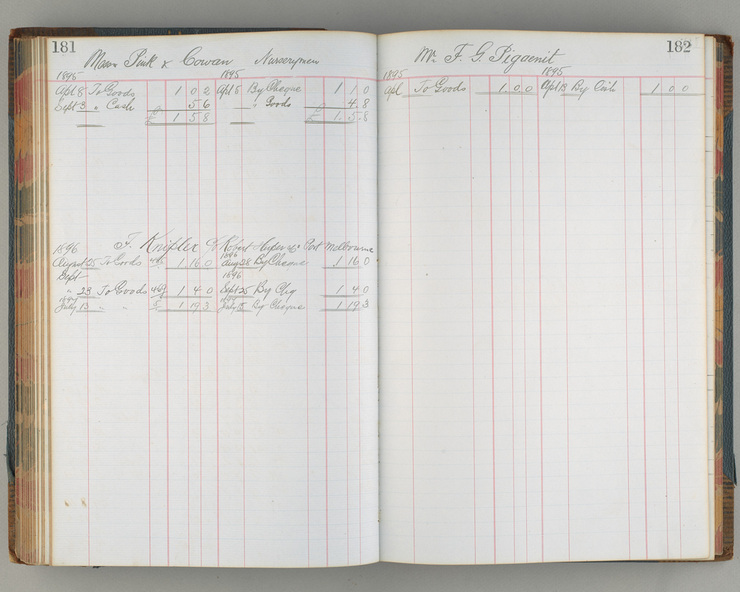 181
Pink & Cowan Nurserymen
1895 1895
Apl 8 To Goods 1 0 2 Apl 5 By Cheque 1 1 0
Sept 3 " Cash 5 6 " Goods 4 8
£ 1 5 8 £ 1 5 8
1896 F. Knifler Robert Port Melbourne
1896
August 25 To Goods 1 16 0 Aug 28 By Cheque 1 16 0
Sept 1896
" 23 To Goods 1 4 0 Sept 25 By Chq 1 4 0
July 13 " " 1 19 3 July 15 By Cheque 1 19 3
182
Mr F. G. Pigaenit
1895 1895
Apl To Goods 1 0 0 Apl 18 By Cash 1 0 0